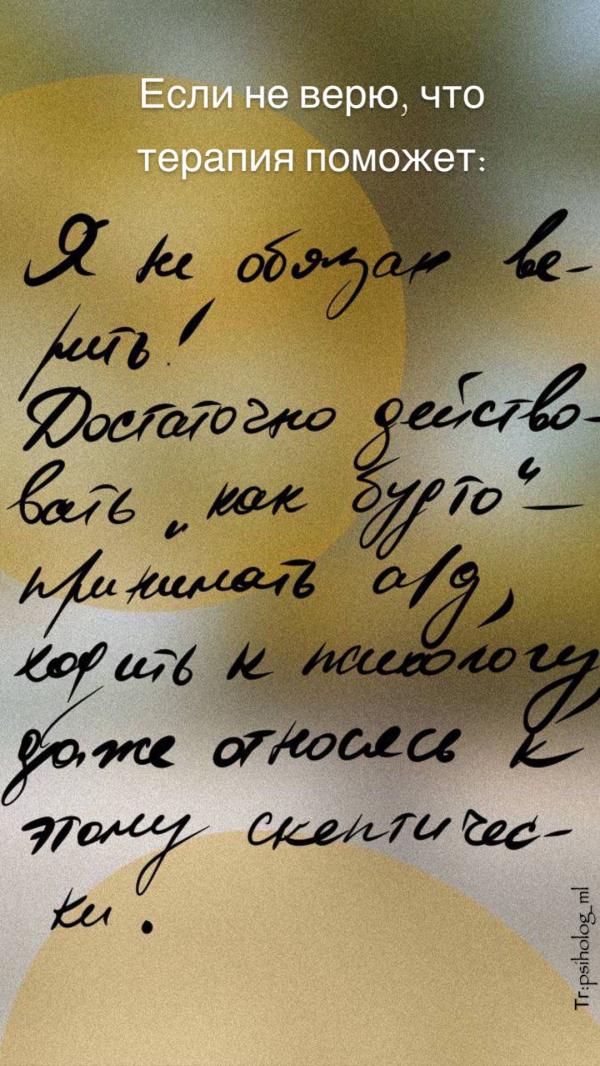 Если не верю, что
терапия поможет:
Я не обязан ве-
рить!
Достаточно действо-
вать „как будто“ –
принимать а/д,
ходить к психологу
даже относясь к
этому скептичес-
ки.
Tг:psiholog_ml